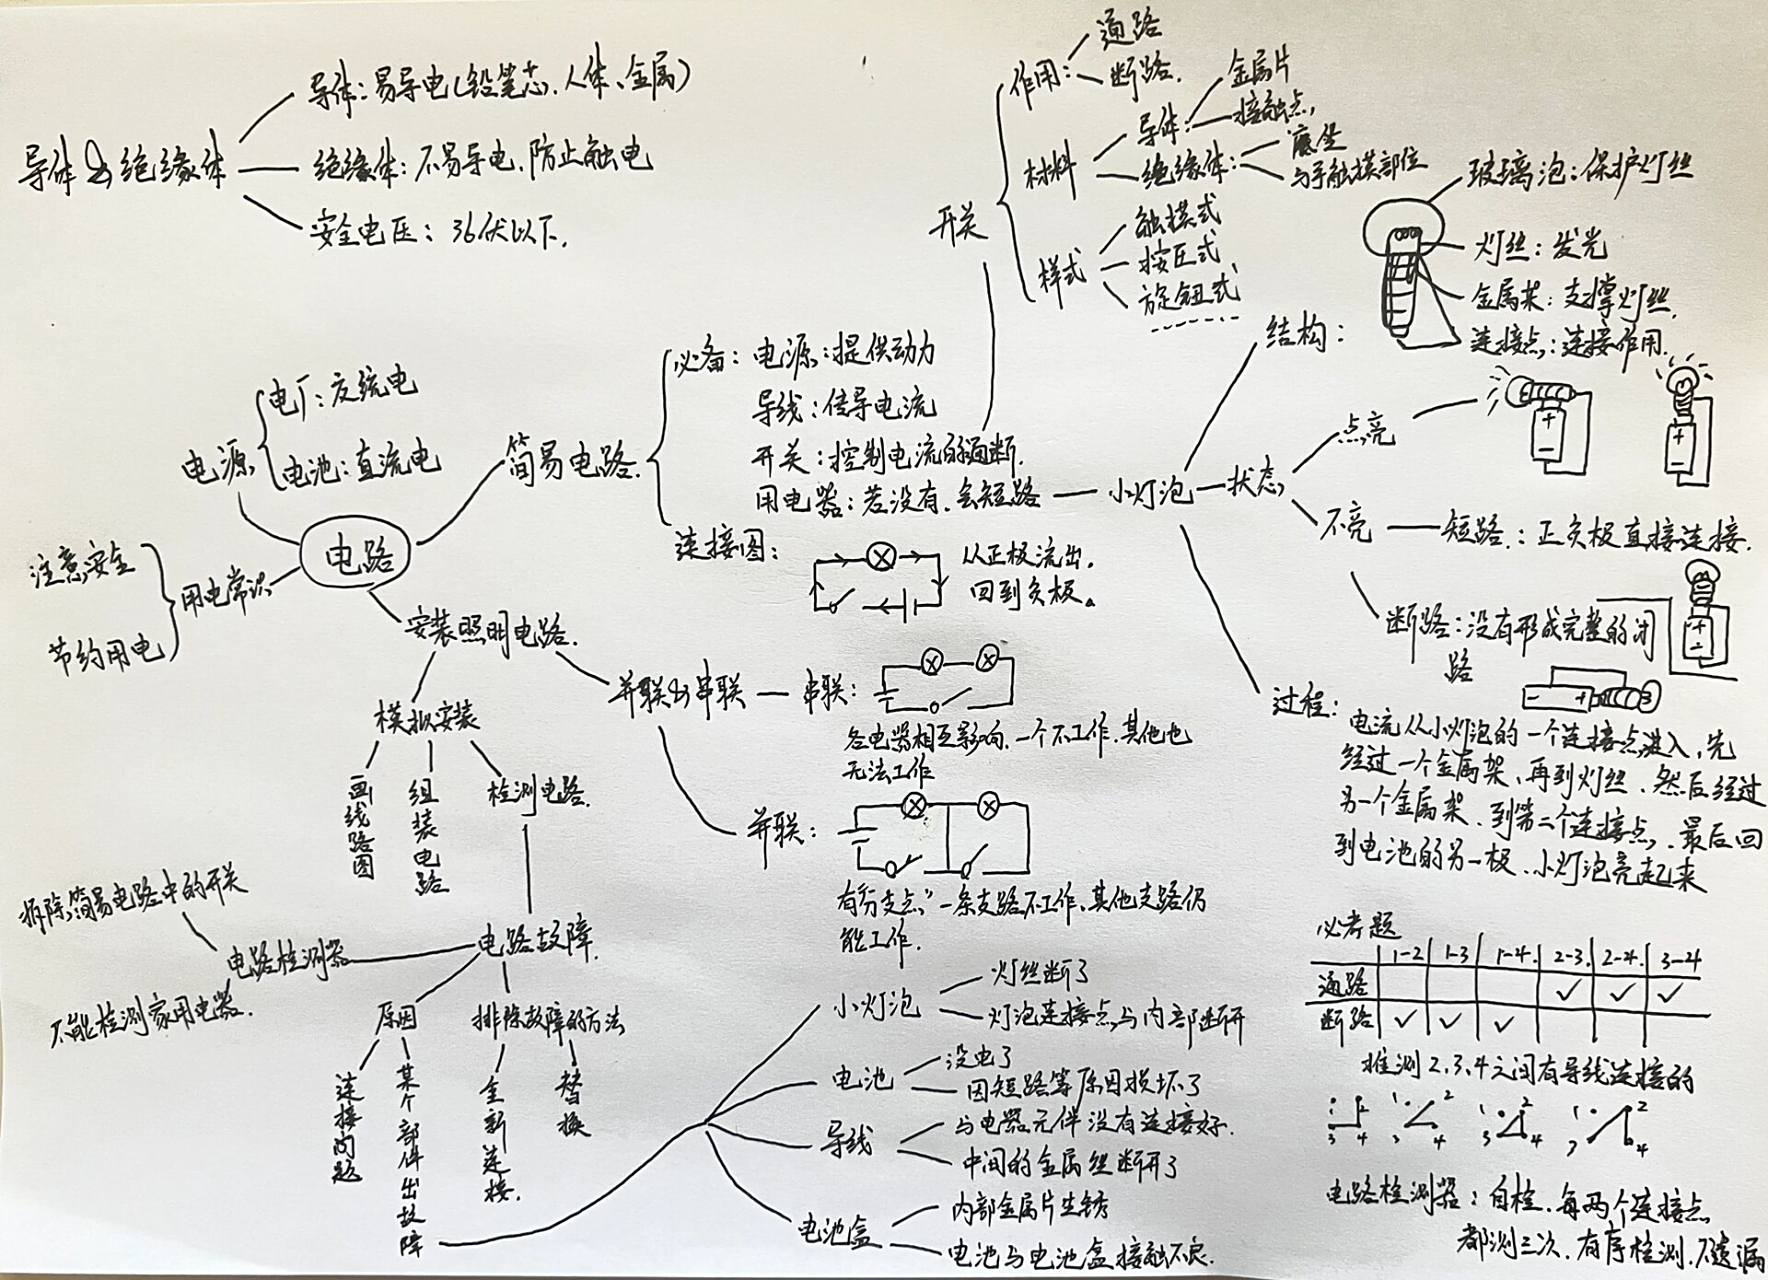 导体&绝缘体
导体：易导电(铅笔芯、人体、金属)
绝缘体：不易导电、防止触电
安全电压：36伏以下.
开关
作用：
通路
断路.
材料
导体：
金属片
接触点
绝缘体：
底座
与手触摸部位
样式
触摸式
按压式
旋钮式
电路
电源
电厂：交流电
电池：直流电
用电常识
注意安全
节约用电
简易电路.
必备：电源：提供动力
导线：传导电流
开关：控制电流的通断.
用电器：若没有.会短路
连接图：
从正极流出.
回到负极。
小灯泡
结构：
玻璃泡：保护灯丝
灯丝：发光
金属架：支撑灯丝.
连接点：连接作用.
状态
点亮
+
-
+
-
不亮
短路：正负极直接连接.
断路：没有形成完整的闭
路
+
-
- +
过程：
电流从小灯泡的一个连接点进入，先
经过一个金属架、再到灯丝、然后经过
另一个金属架、到第二个连接点、最后回
到电池的另一极、小灯泡亮起来
安装照明电路.
模拟安装
画线路图
组装电路
检测电路.
并联&串联
串联：
各电器相互影响.一个不工作.其他也
无法工作
并联：
有分支点，一条支路不工作、其他支路仍
能工作.
电路故障.
电路检测器
拆除简易电路中的开关
不能检测家用电器.
原因
连接问题
某个部件出故障
排除故障的方法
全新连接.
替换
小灯泡
灯丝断了
灯泡连接点与内部断开
电池
没电了
因短路等原因损坏了
导线
与电器元件没有连接好.
中间的金属丝断开了
电池盒
内部金属片生锈
电池与电池盒接触不良.
必考题
1-2 1-3 1-4. 2-3. 2-4. 3-4
通路 ✓ ✓ ✓
断路 ✓ ✓ ✓
推测2.3.4之间有导线连接的
1 2 3 4
1 2 3 4
1 2 3 4
1 2 3 4
电路检测器：自检.每两个连接点
都测三次.有序检测.不遗漏